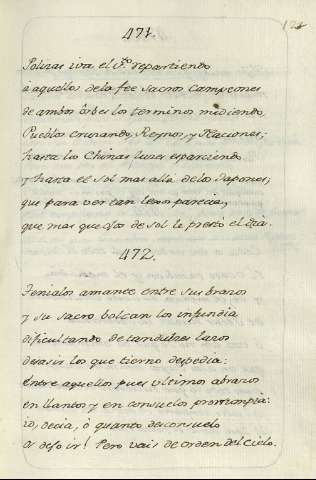 471.
121
Polizas iva el S.to repartiendo
a aquellos de la fee sacros Campeones
de ambos órbes los terminos midiendo,
Pueblos cruzando, Reynos, y Naciones;
hasta los Chinas luzes esparciendo
y hasta el sol mas allá de los Japones,
que para ver tan lexos parecia,
que mas que ojos de sol le prestó el dia.
472.
Tenialos amante entre sus brazos
y su sacro bolcan los infundia
dificultando de tan dulzes lazos
desasir los que tierno despedia:
Entre aquellos pues ultimos abrazos
en llantos y en consuelos prorrumpia:
id, decia, ó quanto desconsuelo
Os dejo ir! Pero vais de orden del Cielo.